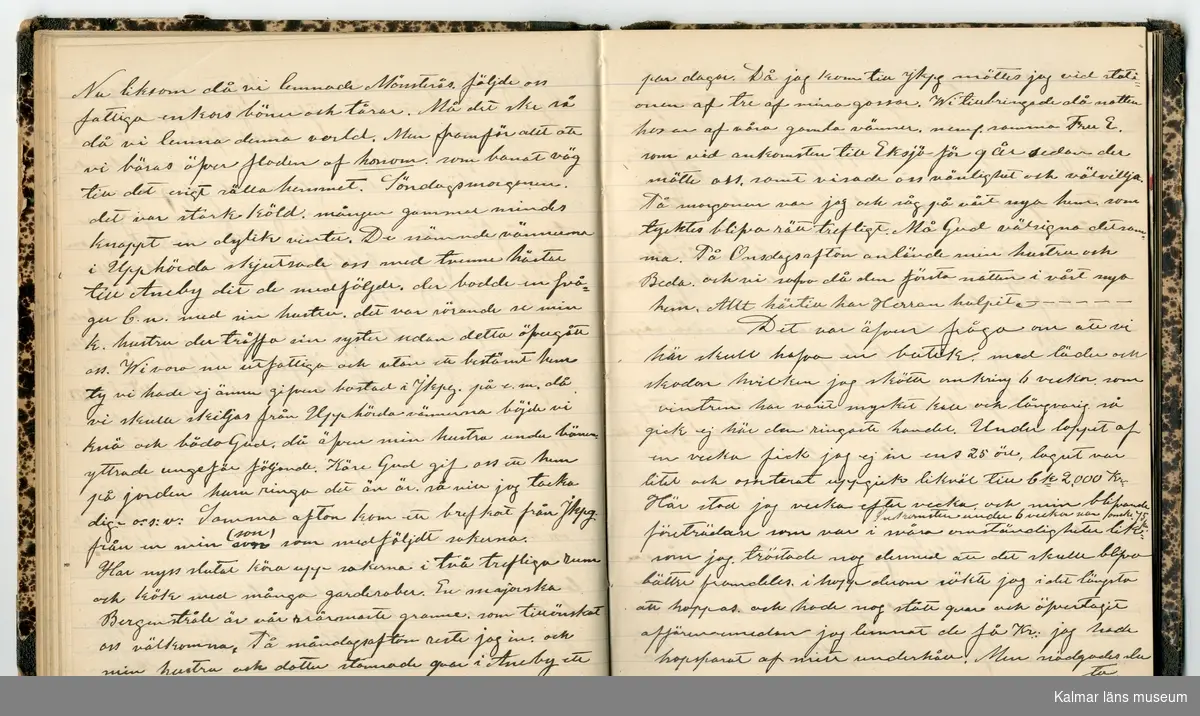 Nu liksom då vi lemnade Mönsterås följde oss
fattiga enkors böner och tårar. Må det ske så
då vi lemna denna verld. Men framför allt att
vi bäras öfver floden af honom, som banat väg
till det evigt sälla hemmet. Söndagsmorgonen.
det var stark köld. mången gammal mindes
knappt en dylik vinter. De nämnde vännerna
i Upphörda skjutsade oss med tvenne hästar
till Aneby dit de medföljde. der bodde en svå-
ger C. n. med sin hustru. det var rörande se min
k. hustru der träffa sin syster sedan detta öfvergått
oss. Wi voro nu utfattiga och utan ett bestämt hem
ty vi hade ej ännu gifven bostad i Jkpg. på e. m. då
vi skulle skiljas från Upphörda vännerna böjde vi
knä och bådo Gud. då äfven min hustru under bönen
yttrade ungefär följande. Käre Gud gif oss ett hem
på jorden huru ringa det än är. så vill jag tacka
dig. o.s.v: Samma afton kom ett brefkort från Jkpg.
från en min (son) som medföljdt sakerna.
Har nyss slutat köra upp sakerna i två trefliga rum
och kök med många garderober. En majorska
Bergenstråle är vår närmaste granne. som tillönskat
oss välkomna. På måndagsafton reste jag in. och
min hustru och dotter stannade qvar i Aneby ett
par dagar. Då jag kom till Jkpg möttes jag vid stati-
onen af tre af mina gossar. Wi tillbringade då natten
hos en af våra gamla vänner. neml. samma Fru E.
som vid ankomsten till Eksjö för 9 år sedan der
mötte oss, samt visade oss vänlighet och välvilja.
På morgonen var jag och såg på vårt nya hem, som
tycktes blifva rätt trefligt. Må Gud välsigna detsam-
ma. På Onsdagsafton anlände min hustru och
Beda. och vi sofvo då den första natten i vårt nya
hem. Allt härtill har Herran hulpit.
Det var äfven fråga om att vi
här skull hafva en butik. med läder och
skodon hvilken jag skötte omkring 6 veckor som
vintren har varit mycket kall och långvarig så
gick ej här den ringaste handel. Under loppet af
en vecka fick jag ej in ens 25 öre, lagret var
litet och osorterat uppgick likväl till c:a 2,000 Kr.
Här stod jag vecka efter vecka. och min blifvande
Inkomsten under 6 veckor var under 15 kr.
företrädare som var i svåra omständigheter lik-
som jag tröstade nog dermed att det skulle blifva
bättre framdeles. i hopp derom sökte jag i det längsta
att hoppas. och hade nog stått qvar och öfvertagit
affären emedan jag lemnat de få Kr: jag hade
hopsparat af mitt underhåll. Men nödgades slu
ta
Kalmar läns museum